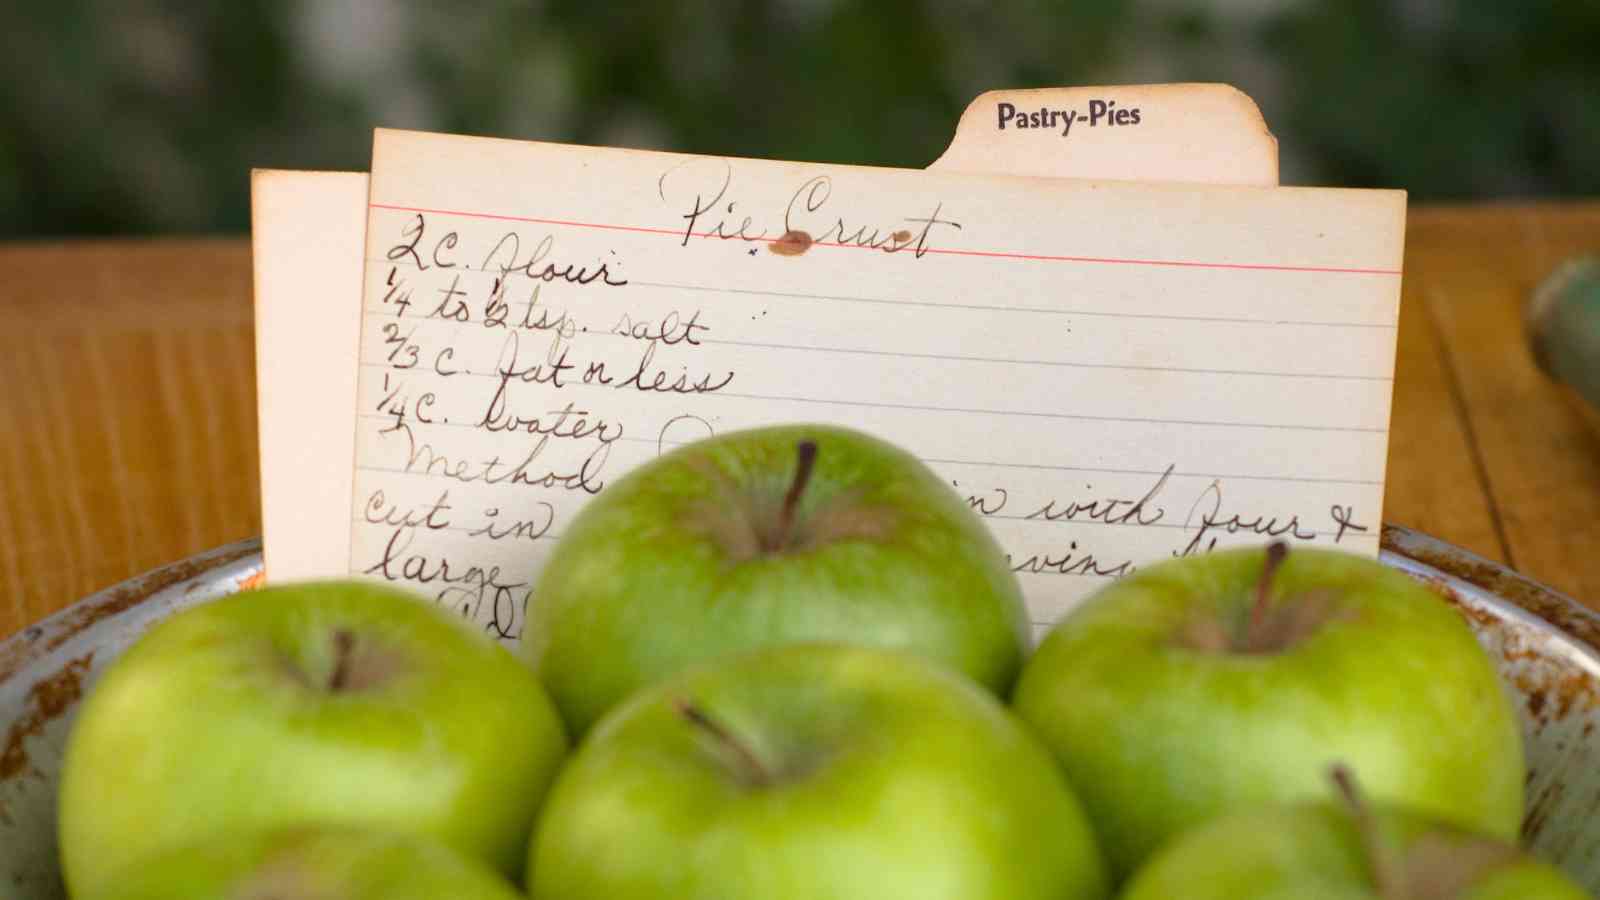 Pastry-Pies
Pie Crust
2 C. flour
1/4 to 1/2 tsp. salt
2/3 C. fat or less
1/4 C. water
Method in with four &
cut in
large